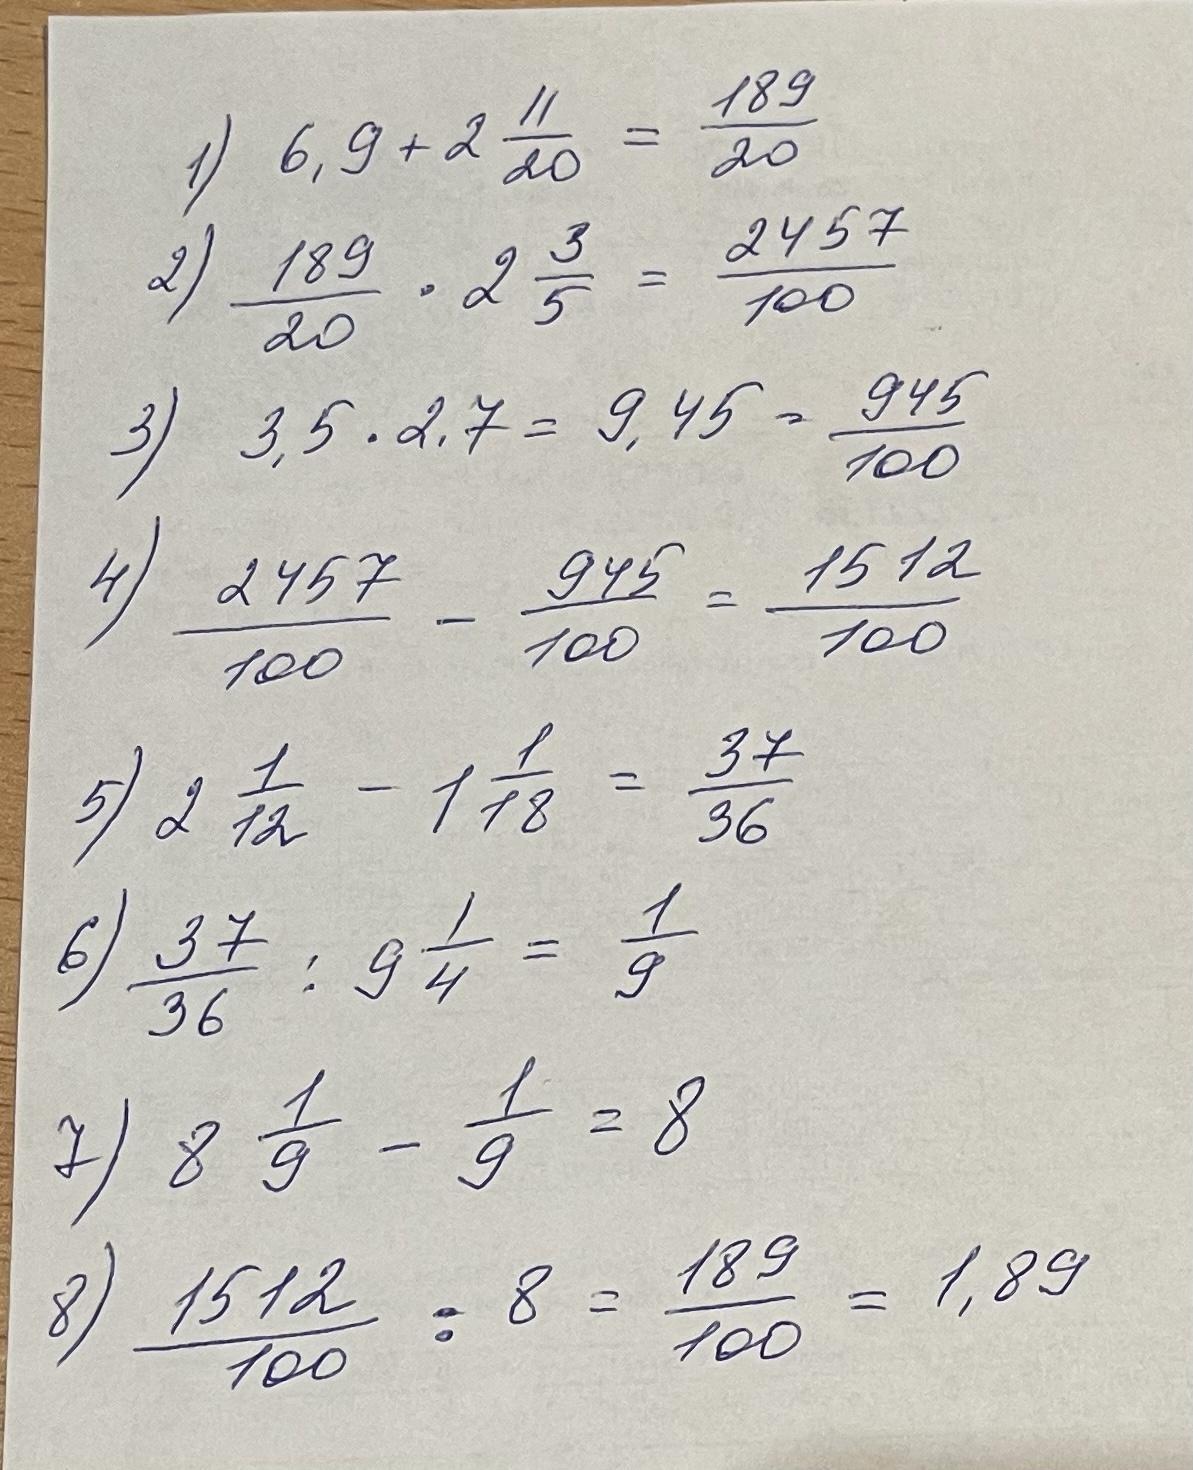 1) 6,9 + 2 11/20 = 189/20
2) 189/20 · 2 3/5 = 2457/100
3) 3,5 · 2,7 = 9,45 = 945/100
4) 2457/100 - 945/100 = 1512/100
5) 2 1/12 - 1 1/18 = 37/36
6) 37/36 : 9 1/4 = 1/9
7) 8 1/9 - 1/9 = 8
8) 1512/100 : 8 = 189/100 = 1,89